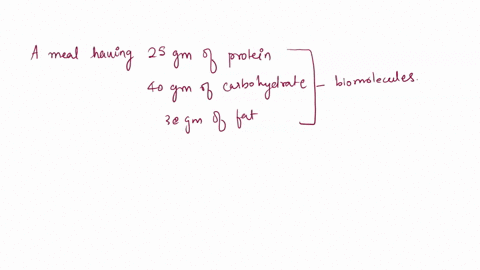 A meal having 25 gm of protein
40 gm of carbohydrate - biomolecules.
30 gm of fat